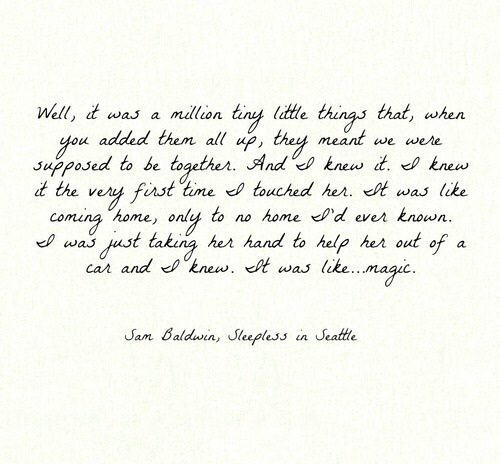 Well, it was a million tiny little things that, when
you added them all up, they meant we were
supposed to be together. And I knew it. I knew
it the very first time I touched her. It was like
coming home, only to no home I'd ever known.
I was just taking her hand to help her out of a
car and I knew. It was like...magic.
Sam Baldwin, Sleepless in Seattle